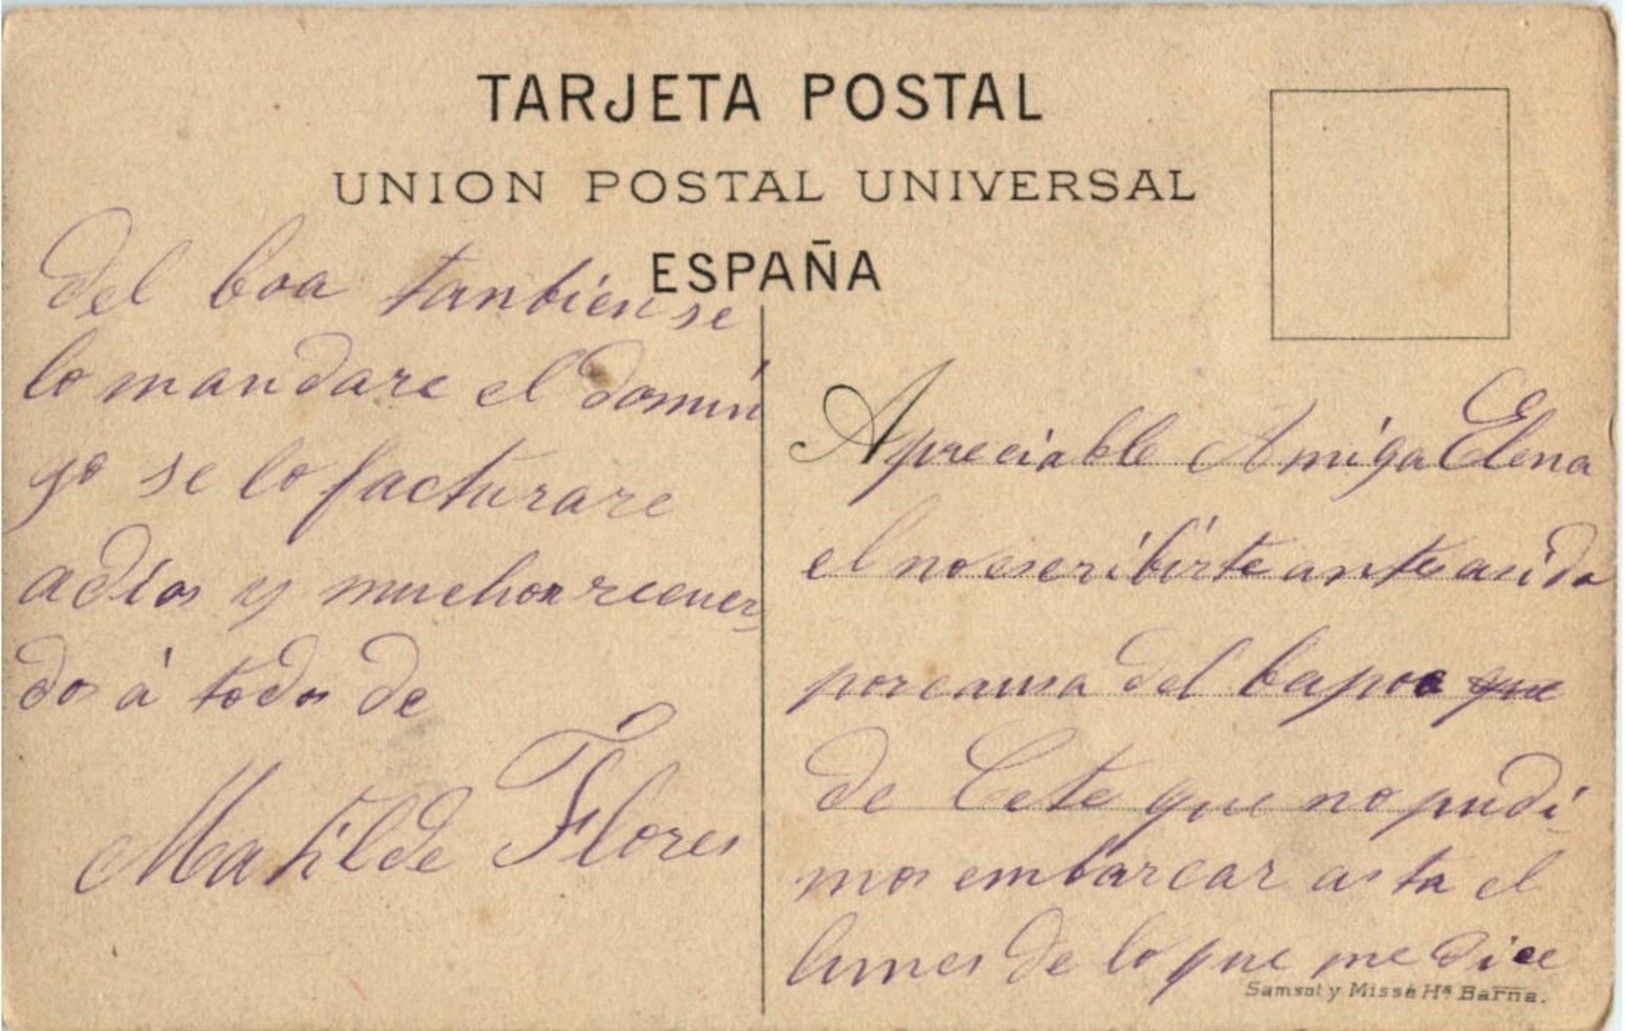 TARJETA POSTAL
UNION POSTAL UNIVERSAL
ESPAÑA
Apreciable Amiga Elena
el no escribirte antes asido
por causa del bapor que
de Cete que no pudi
mos embarcar asta el
lunes de lo que me dice
del boa tanbien se
lo mandare el domin
go se lo facturare
adios y muchos recuer
dos á todos de
Matilde Flores
Samsot y Missé Hs Barna.